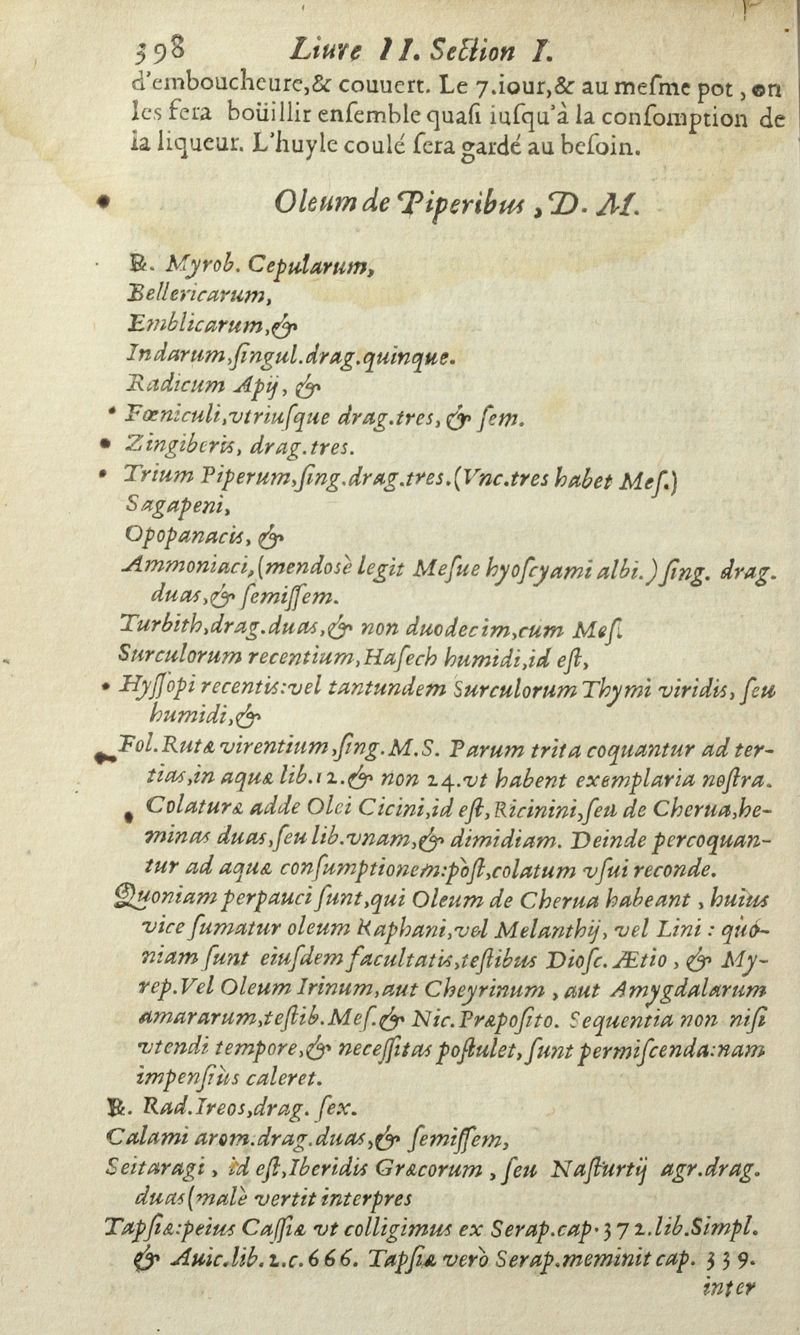 398 Liure II. Section I.
d'emboucheure,& couuert. Le 7.iour,& au mesme pot, on
les fera boüillir ensemble quasi iusqu'à la consomption de
la liqueur. L'huyle coulé sera gardé au besoin.
Oleum de Piperibus, D. M.
℞. Myrob. Cepularum,
Bellericarum,
Emblicarum,&
Indarum,singul.drag.quinque.
Radicum Apij, &
* Fœniculi,vtriusque drag.tres, & sem.
* Zingiberis, drag.tres.
* Trium Piperum,sing.drag.tres.(Vnc.tres habet Mes.)
Sagapeni,
Opopanacis, &
Ammoniaci,(mendosè legit Mesue hyoscyami albi.) sing. drag.
duas,& semissem.
Turbith,drag.duas,& non duodecim,cum Mes.
Surculorum recentium,Hasech humidi,id est,
* Hyssopi recentis:vel tantundem Surculorum Thymi viridis, seu
humidi,&
Fol.Rutæ virentium,sing.M.S. Parum trita coquantur ad ter-
tias,in aquæ lib.12.& non 24.vt habent exemplaria nostra.
Colaturæ adde Olei Cicini,id est,Ricinini,seu de Cherua,he-
minas duas,seu lib.vnam,& dimidiam. Deinde percoquan-
tur ad aquæ consumptionem:pòst,colatum vsui reconde.
Quoniam perpauci sunt,qui Oleum de Cherua habeant, huius
vice sumatur oleum Raphani,vel Melanthij, vel Lini: quó-
niam sunt eiusdem facultatis,testibus Diosc.Ætio, & My-
rep.Vel Oleum Irinum,aut Cheyrinum, aut Amygdalarum
amararum,testib.Mes.& Nic.Præposito. Sequentia non nisi
vtendi tempore,& necessitas postulet, sunt permiscenda:nam
impensiùs caleret.
℞. Rad.Ireos,drag. sex.
Calami arom.drag.duas,& semissem,
Seitaragi, id est,Iberidis Græcorum, seu Nasturtij agr.drag.
duas(malè vertit interpres
Tapsiæ:peius Cassiæ vt colligimus ex Serap.cap.372.lib.Simpl.
& Auic.lib.2.c.666. Tapsiæ verò Serap.meminit cap. 339.
inter